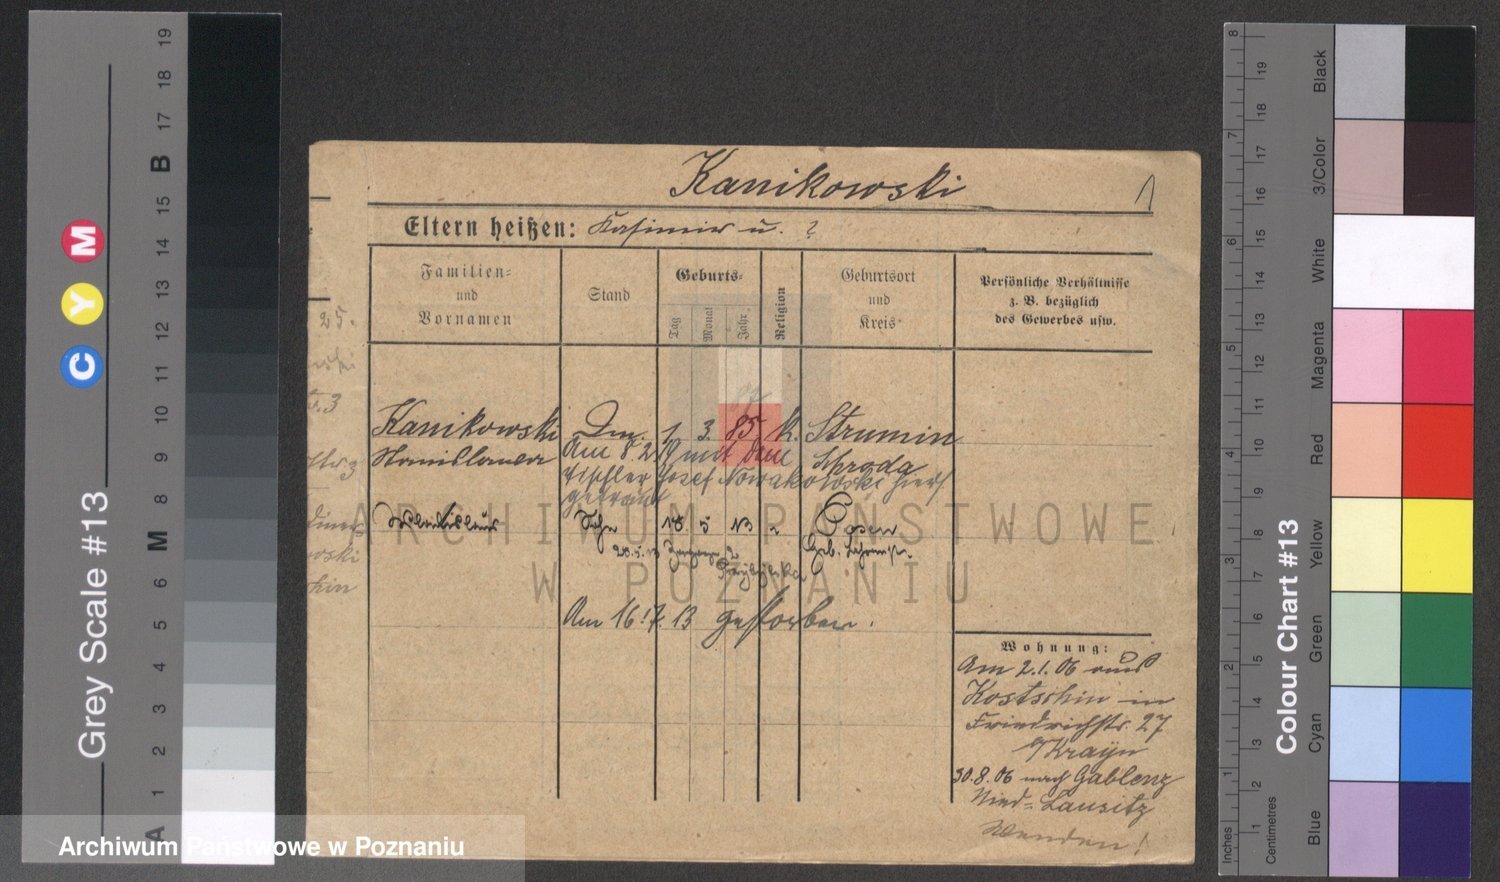 Kanikowski
1
Eltern heißen: Kasimir u. ?
Familien-
und
Vornamen
Stand
Geburts-
Tag
Monat
Jahr
Religion
Geburtsort
und
Kreis
Persönliche Verhältnisse
z. B. bezüglich
des Gewerbes usw.
Kanikowski 1 3 85 k. Strumin
Stanislawa Schroda
Am 8.2.19 mit dem
Tischler Josef Nowakowski hier
getraut
Sohn 18 5 13 Posen
20.5.13
Am 16.7.13 gestorben.
Wohnung:
Am 2.1.06 aus
Kostschin in
Friedrichstr. 27
b/Krayn
30.8.06 nach Gablenz
Nied-Lausitz
Wenden!
25.
ARCHIWUM PAŃSTWOWE
W POZNANIU
Archiwum Państwowe w Poznaniu
Grey Scale #13
C Y M
A 1 2 3 4 5 6 M 8 9 10 11 12 13 14 15 B 17 18 19
Colour Chart #13
Blue Cyan Green Yellow Red Magenta White 3/Color Black
Inches 1 2 3 4 5 6 7 8
Centimetres 1 2 3 4 5 6 7 8 9 10 11 12 13 14 15 16 17 18 19